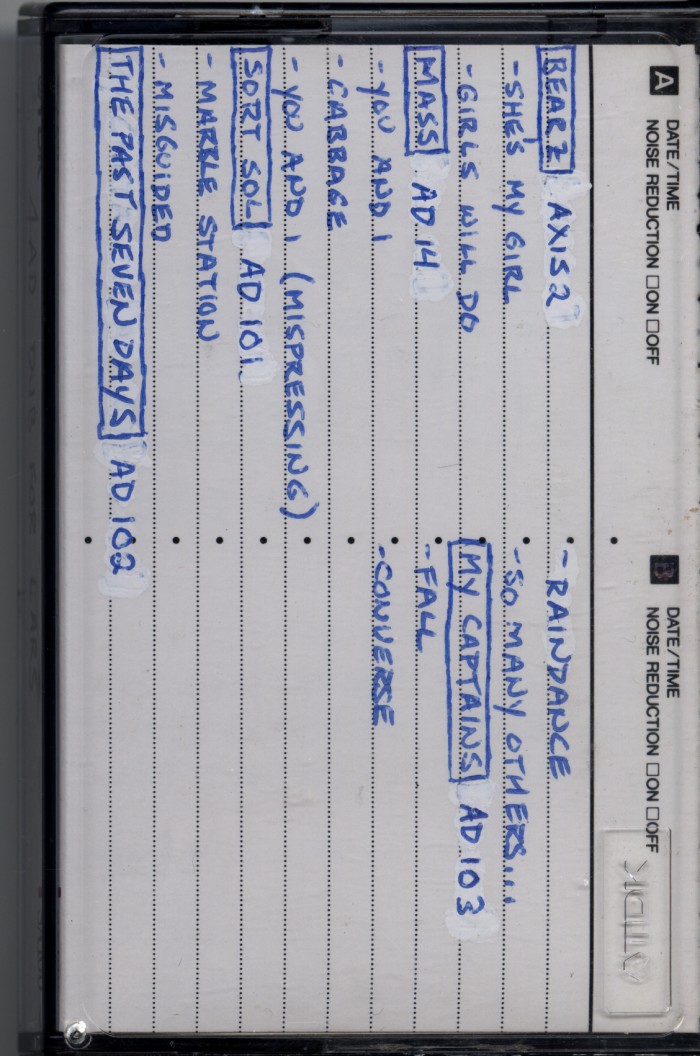 A DATE/TIME
NOISE REDUCTION ☐ON ☐OFF
BEARZ AXIS 2
- SHE'S MY GIRL
- GIRLS WILL DO
MASS AD 14
- YOU AND I
- CABBAGE
- YOU AND I (MISPRESSING)
SORT SOL AD 101
- MARBLE STATION
- MISGUIDED
THE PAST SEVEN DAYS AD 102
B DATE/TIME
NOISE REDUCTION ☐ON ☐OFF
- RAINDANCE
- SO MANY OTHERS...
MY CAPTAINS AD 103
- FALL
- CONVERSE
TDK